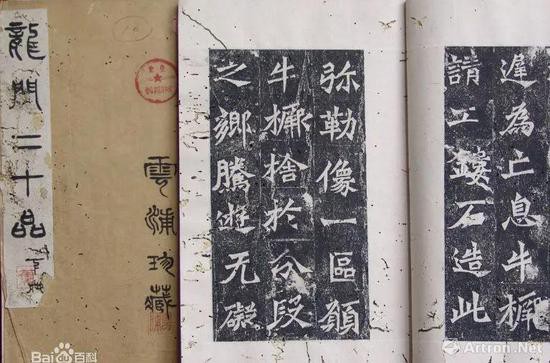 遲為亡息牛橛
請工鏤石造此
弥勒像一區願
牛橛捨於分段
之鄉騰遊无礙
雲浦珍藏
龍門二十品
Bai百科
Artron.Net